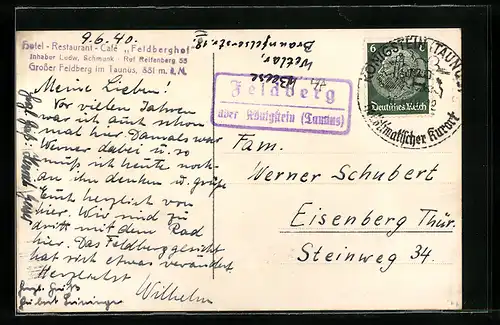 9.6.40.
Hotel - Restaurant - Café „Feldberghof"
Inhaber Ludw. Schmunk · Ruf Reifenberg 55
Großer Feldberg im Taunus, 881 m ü. M.
Meine Lieben!
Vor vielen Jahren
war ich auch schon
mal hier. Damals war
Werner dabei u. so
muß ich heute noch
an ihn denken u. grüße
Euch herzlich von
hier. Wir sind zu
dritt mit dem Rad
hier. Das Feldberggesicht
hat sich etwas verändert
Herzlichst
Wilhelm
Feldberg
über Königstein (Taunus)
6
Deutsches Reich
KÖNIGSTEIN (TAUNUS)
Klimatischer Kurort
Fam.
Werner Schubert
Eisenberg Thür.
Steinweg 34.